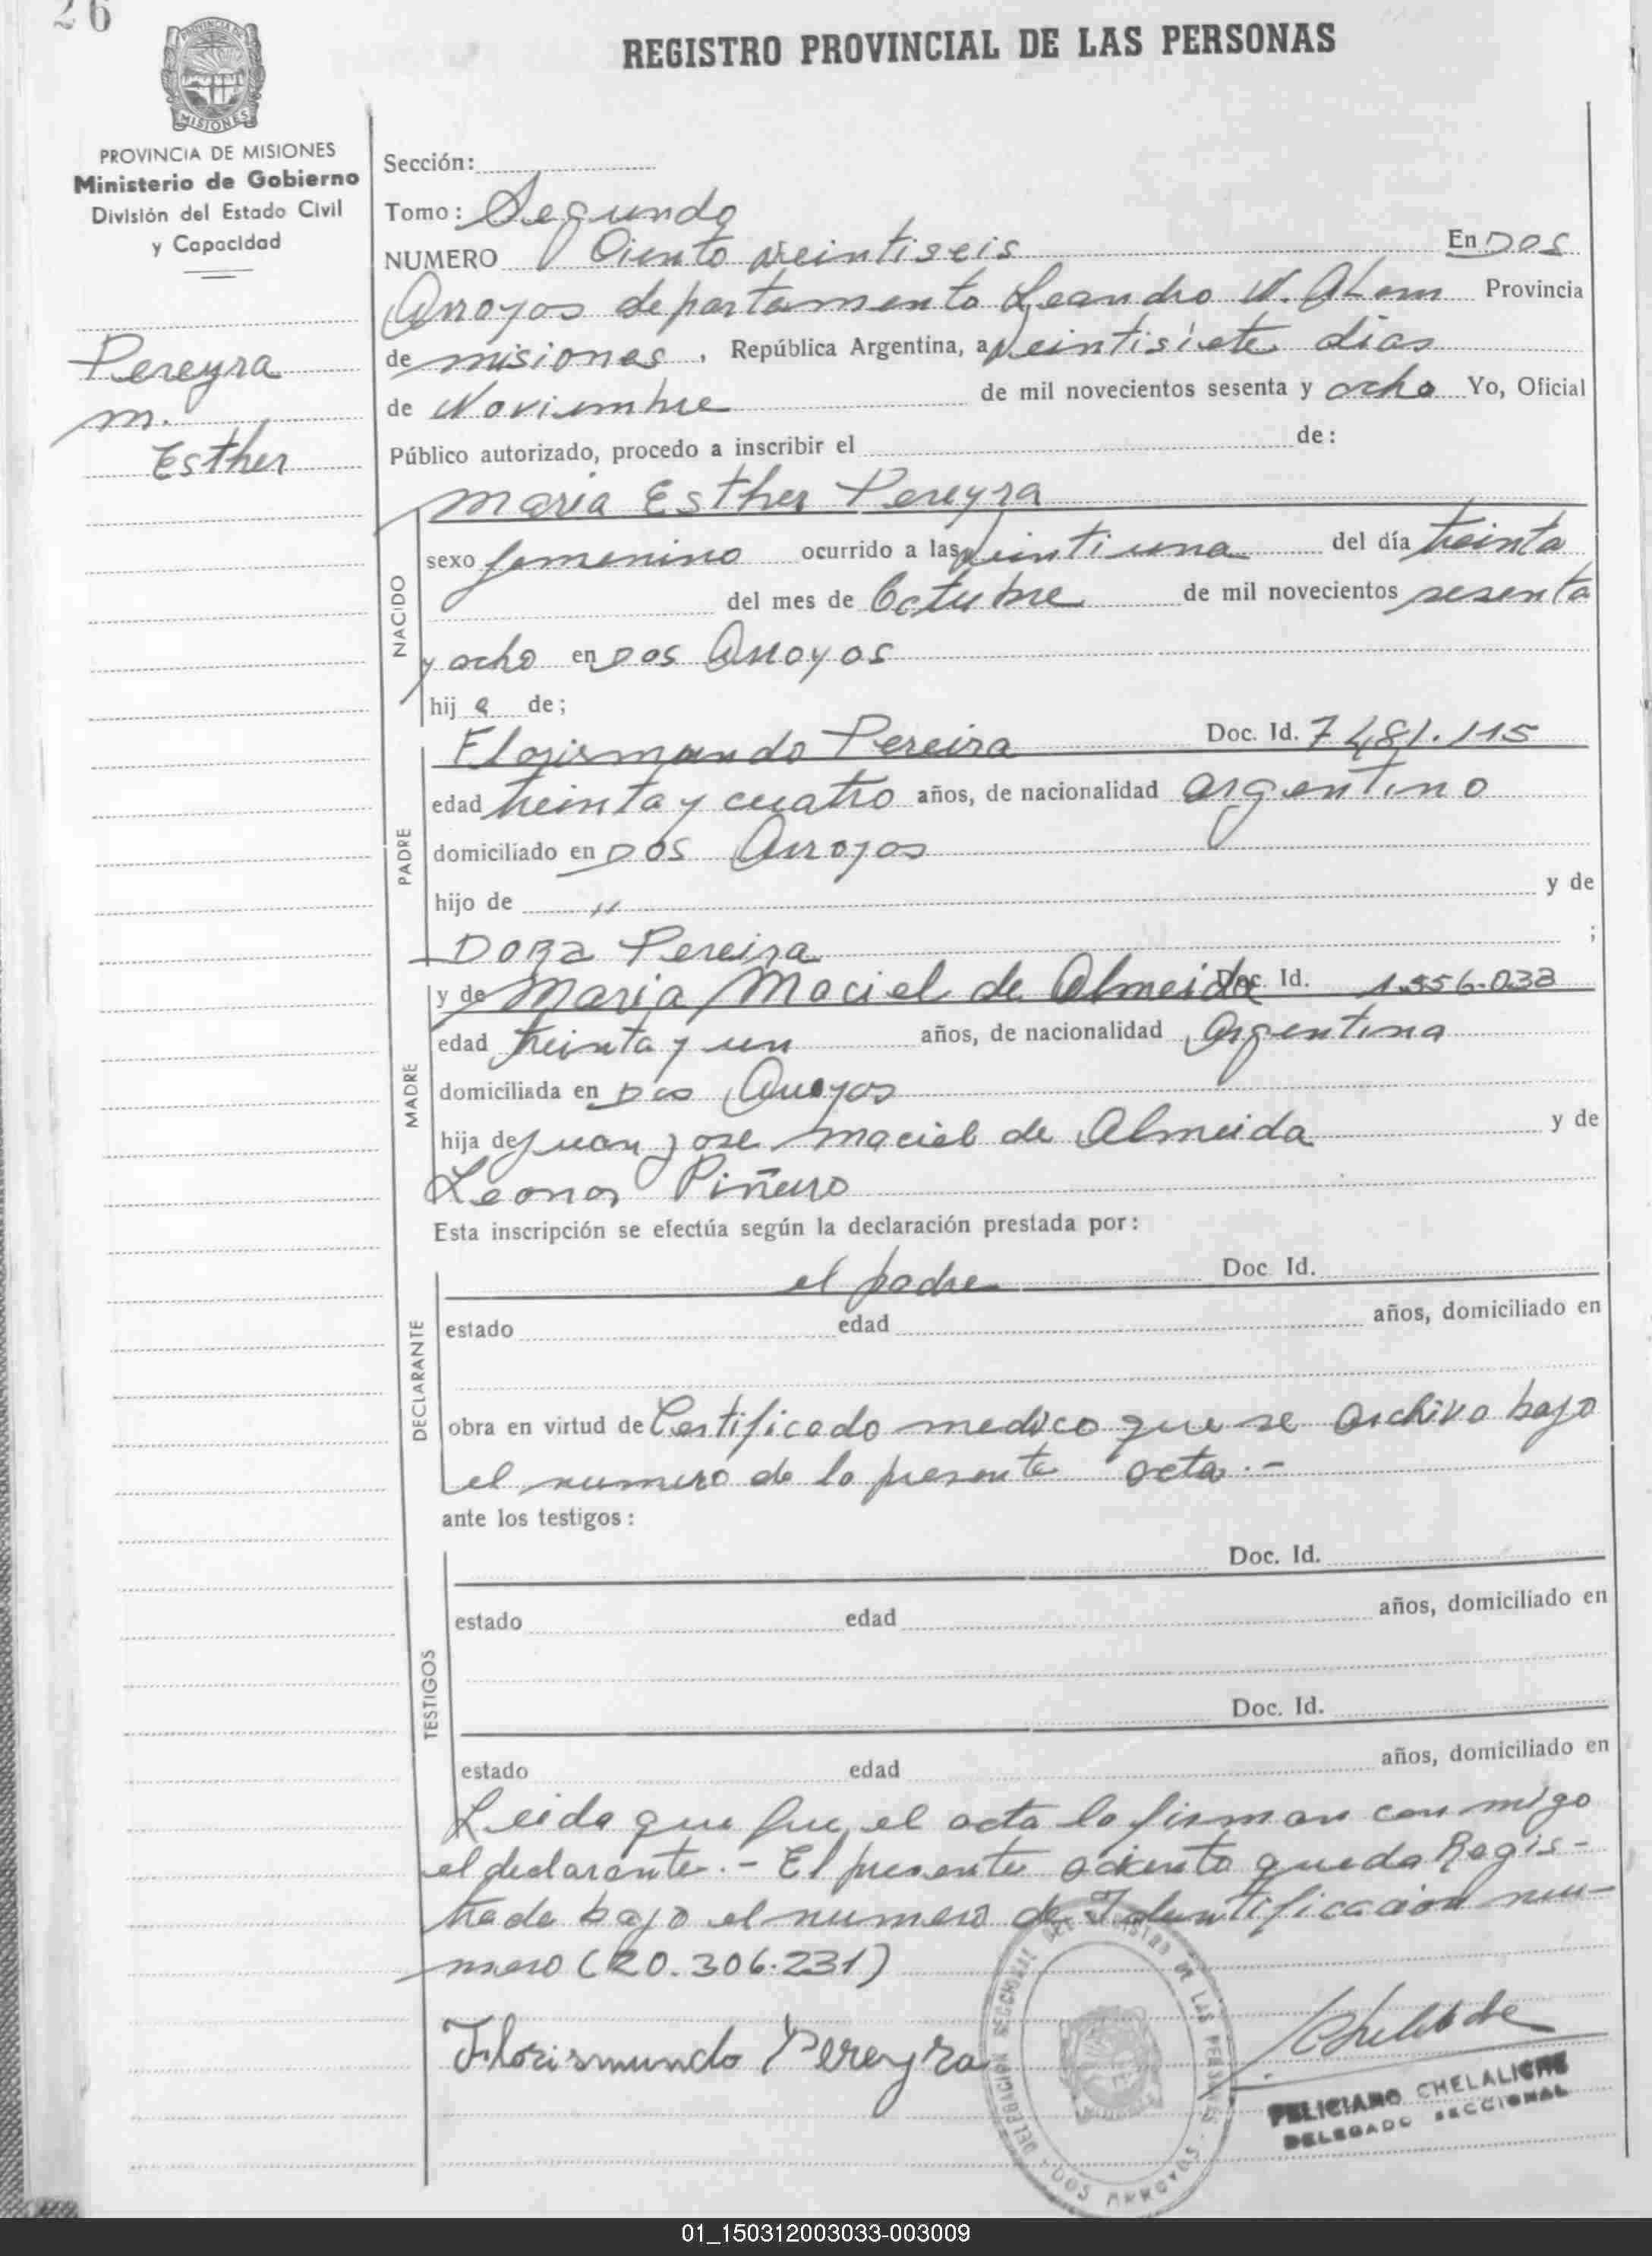 26
REGISTRO PROVINCIAL DE LAS PERSONAS
PROVINCIA DE MISIONES
Ministerio de Gobierno
División del Estado Civil
y Capacidad
Pereyra
M.
Esther
Sección:
Tomo: Segundo
NUMERO Ciento veintiseis En Dos
Arroyos departamento Leandro N. Alem Provincia
de misiones, República Argentina, a veintisiete dias
de Noviembre de mil novecientos sesenta y ocho Yo, Oficial
Público autorizado, procedo a inscribir el de:
Maria Esther Pereyra
NACIDO
sexo femenino ocurrido a las veintiuna del día treinta
del mes de Octubre de mil novecientos sesenta
y ocho en Dos Arroyos
hija de;
PADRE
Florismundo Pereira Doc. Id. 7481.115
edad treinta y cuatro años, de nacionalidad argentino
domiciliado en Dos Arroyos
hijo de " y de
Dora Pereira ;
MADRE
y de Maria Maciel de Almeida Doc. Id. 1.556.033
edad treinta y un años, de nacionalidad Argentina
domiciliada en Dos Arroyos
hija de Juan Jose Maciel de Almeida y de
Leonor Piñeiro
Esta inscripción se efectúa según la declaración prestada por:
DECLARANTE
el padre Doc Id.
estado edad años, domiciliado en
obra en virtud de Certificado medico que se archiva bajo
el numero de la presente acta.-
ante los testigos:
TESTIGOS
Doc. Id.
estado edad años, domiciliado en
Doc. Id.
estado edad años, domiciliado en
Leida que fue el acta la firman con migo
el declarante.- El presente aciento queda Regis-
trada bajo el numero de Identificacion nu-
mero (20.306.231)
Florismundo Pereyra
DELEGACION SECCIONAL DEL REGISTRO DE LAS PERSONAS
DOS ARROYOS
FELICIANO CHELALICHE
DELEGADO SECCIONAL
01_150312003033-003009